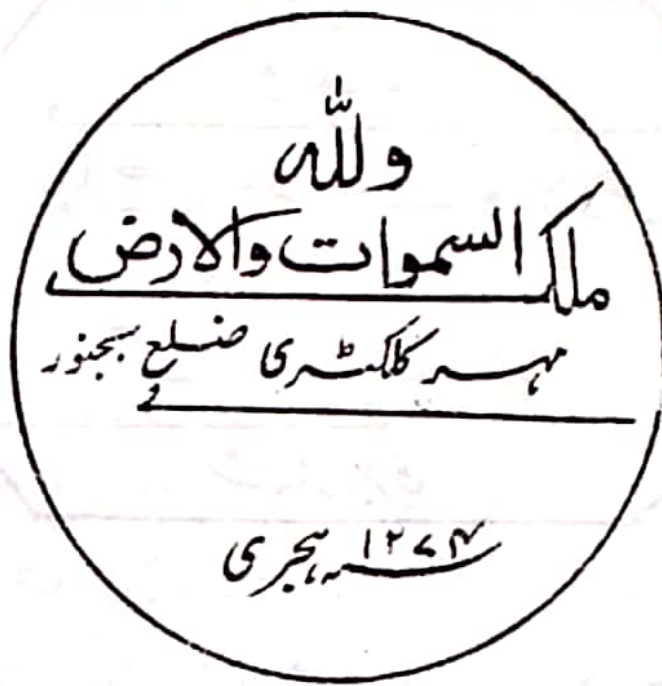 وللہ
ملک السموات والارض
مہر کلکٹری ضلع بجنور
و
۱۲۷۴ سنہ ہجری